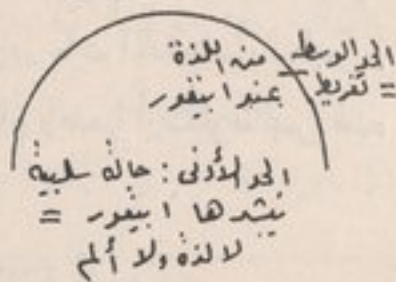 الحد الوسط من اللذة
= تفريط عند ابيقور
الحد الأدنى: حالة سلبية
ينشدها ابيقور =
لا لذة ولا ألم